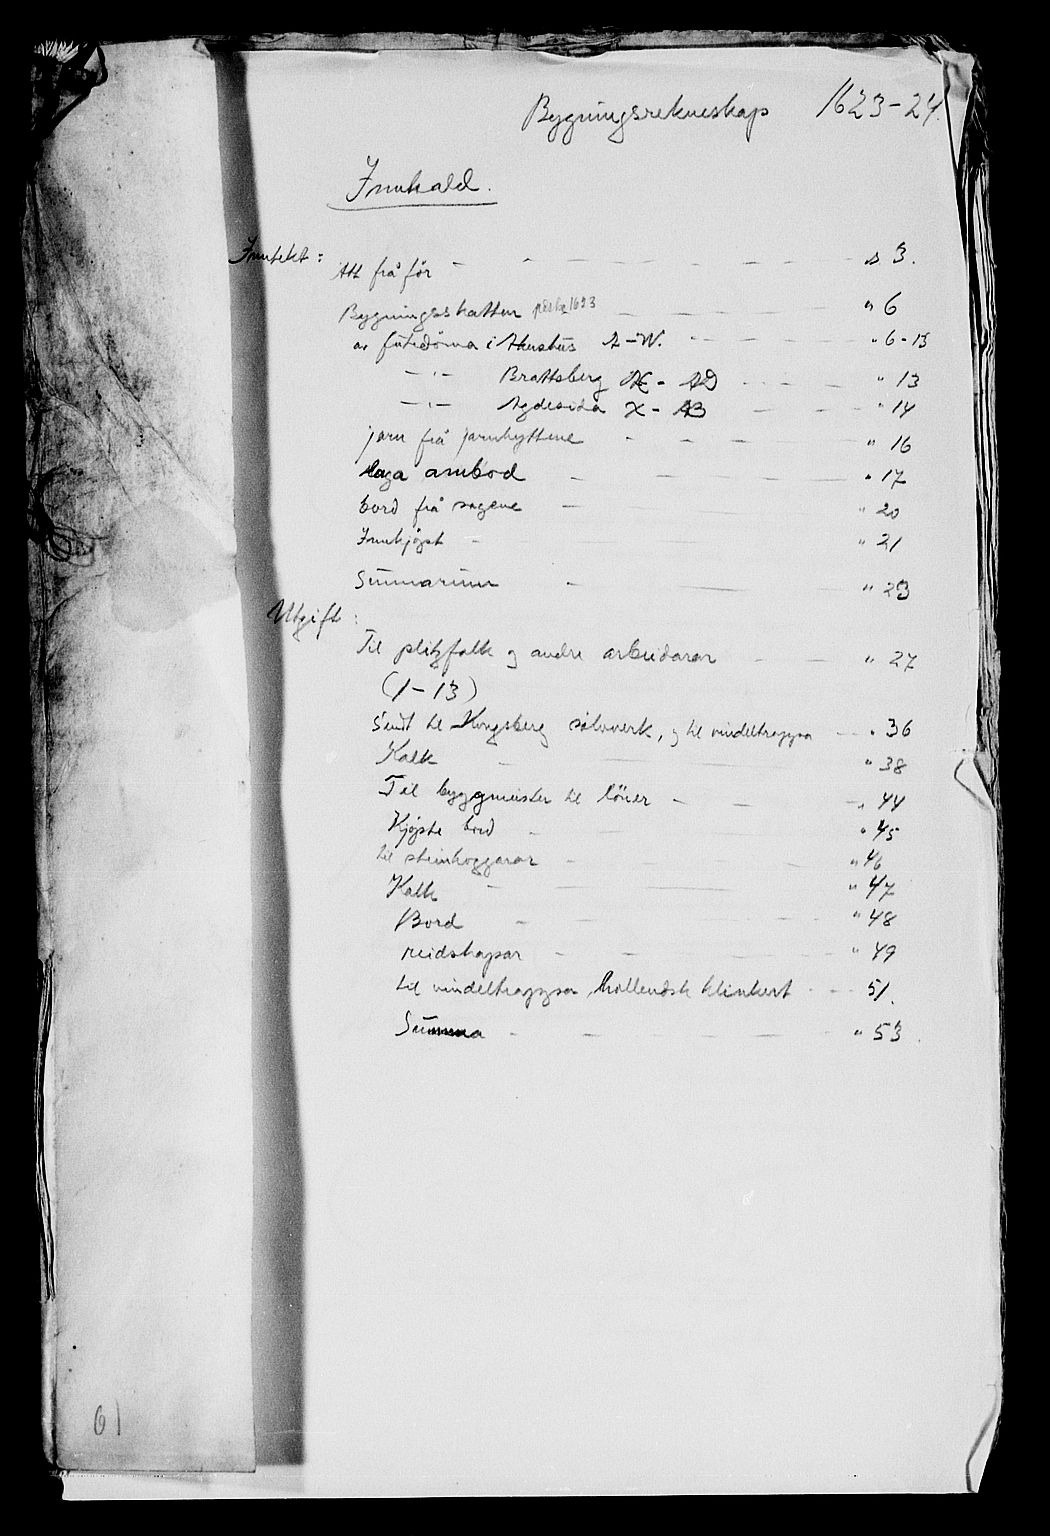 Bygningsrekneskap 1623-24.
Innhald.
Inntekt:
Att frå för s 3.
Bygningsskatten påske 1623 " 6
av futedöma i Akershus A-W. " 6-13
—"— Brattsberg Æ - AD " 13
—"— Agdesida X - AB " 14
jarn frå jarnhyttene " 16
laga ambod " 17
bord frå sagene " 20
Innkjøpt " 21
Summarium " 23
Utgift:
Til plitzfolk og andre arbeidarar " 27
(1-13)
Sendt til Kongsberg sølvverk, og til vindeltrappa " 36
Kalk " 38
Til byggmeister til löner " 44
Kjøpte bord " 45
til steinhoggarar " 46
Kalk " 47
Bord " 48
reidskapar " 49
til vindeltrappa, hollendsk klinkert 51.
Summa " 53.
61